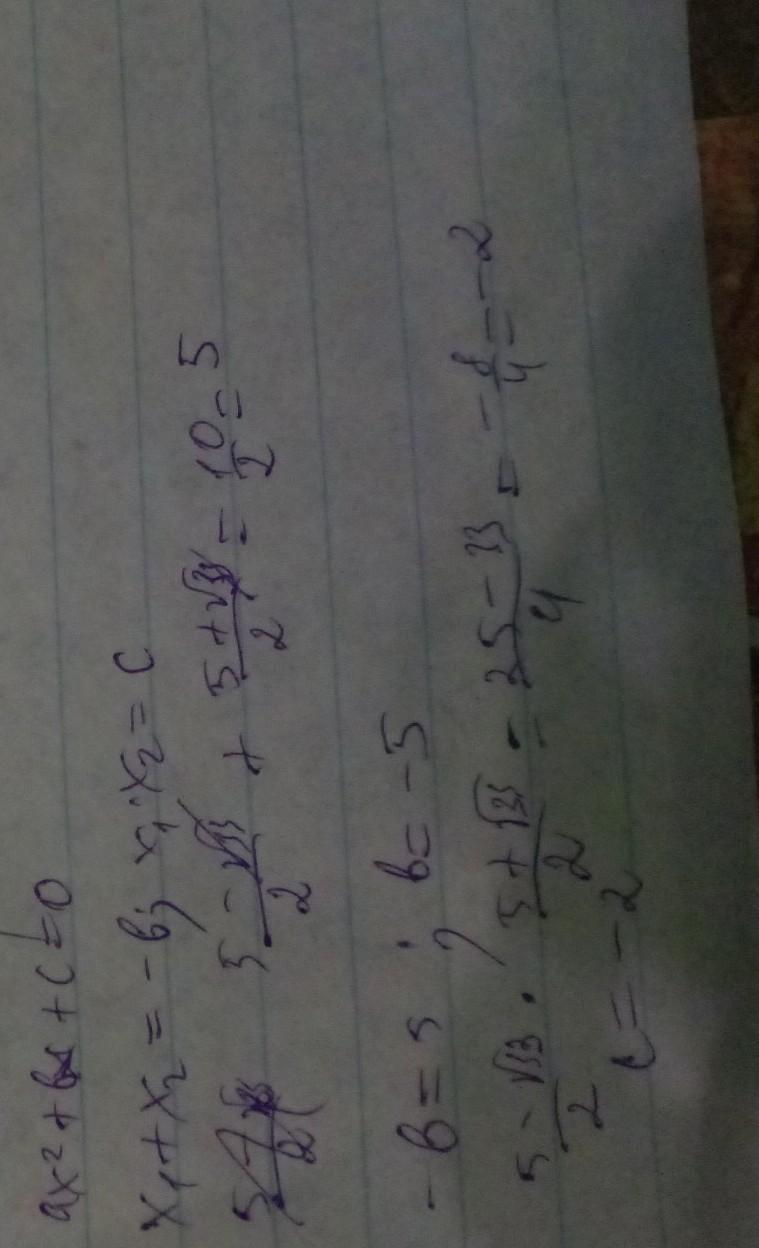 ax² + bx + c = 0
x₁ + x₂ = -b; x₁ · x₂ = c
(5 - √33)/2 + (5 + √33)/2 = 10/2 = 5
-b = 5; b = -5
(5 - √33)/2 · (5 + √33)/2 = (25 - 33)/4 = -8/4 = -2
c = -2